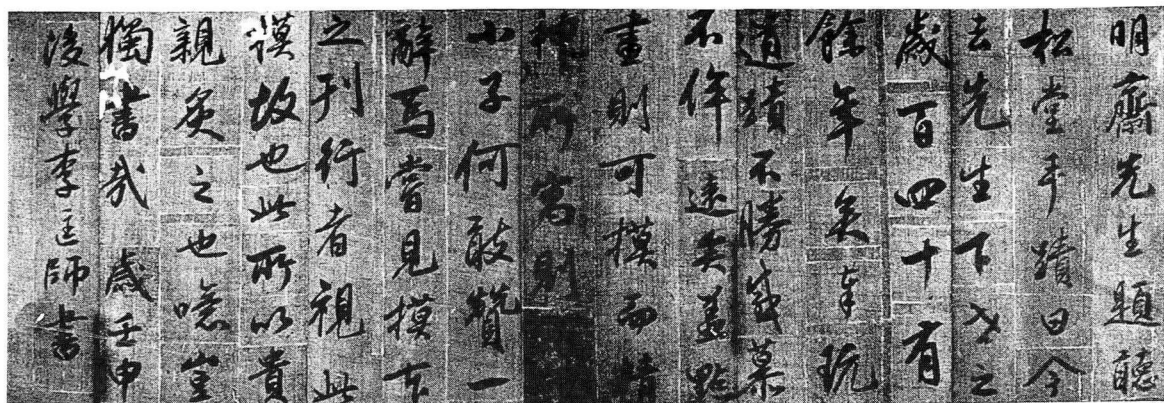 明齋先生題聽
松堂手蹟曰今
去先生下世之
歲百四十有
餘年矣奉玩
遺蹟不勝感慕
不侔遠矣蓋點
畫則可摸而精
神所寓則
小子何敢贊一
辭焉嘗見摸本
之刊行者視此
謨故也此所以貴
親炙之也噫豈
獨書哉 歲壬申
後學李匡師書